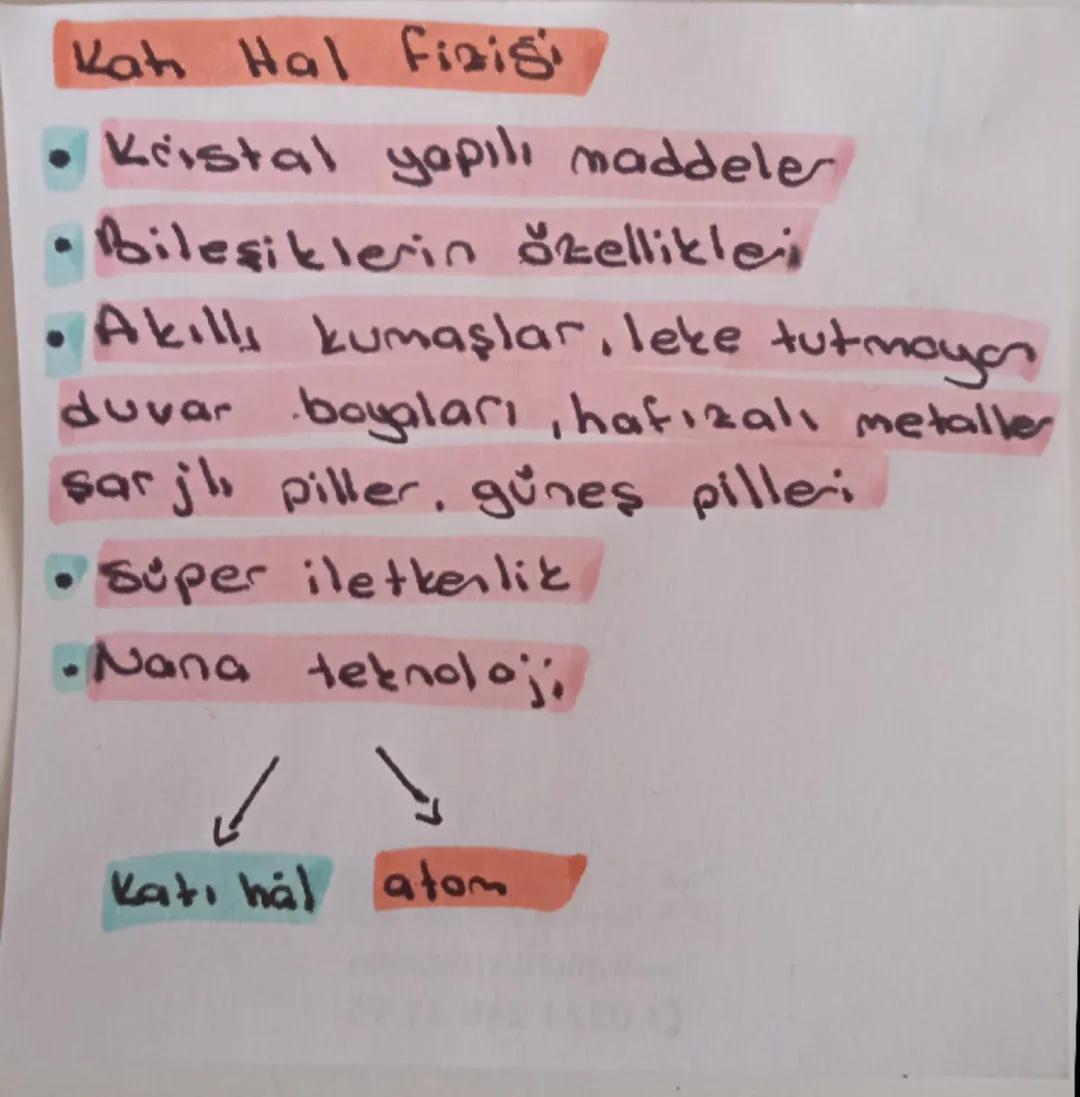 Katı Hal Fiziği
• Kristal yapılı maddeler
• Bileşiklerin özellikleri
• Akıllı kumaşlar, leke tutmayan
duvar boyaları, hafızalı metaller
şarjlı piller, güneş pilleri
• Süper iletkenlik
• Nana teknoloji
Katı hâl atom